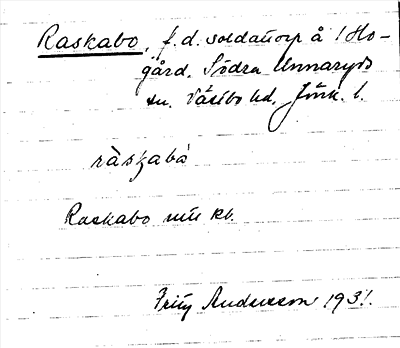 Raskabo, f.d. soldattorp å 1 Ho-
gård. Södra Unnaryds
sn. Västbo hd. Jönk. l.
ràskabó
Raskabo mtl kb.
Fritz Andersson 1931.